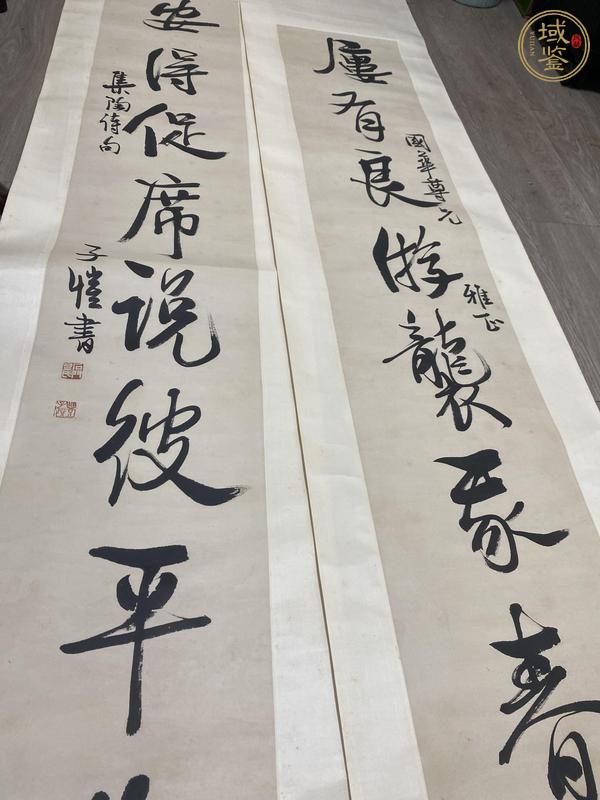 屢有良游襲我春
國華尊兄
雅正
安得促席说彼平
集陶诗句
子愷書
域鉴